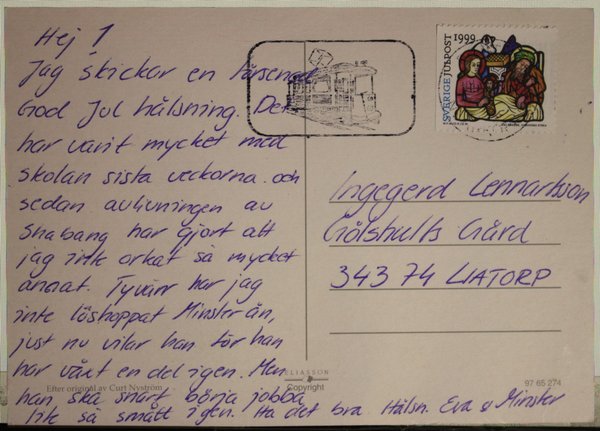 Hej !
Jag skickar en försenad
God Jul hälsning. Det
har varit mycket med
skolan sista veckorna och
sedan avlivningen av
Shabang har gjort att
jag inte orkat så mycket
annat. Tyvärr har jag
inte löshoppat Minster än,
just nu vilar han för han
har växt en del igen. Men
han ska snart börja jobba
lite så smått igen. Ha det bra Hälsn. Eva & Minster
SVERIGE JULPOST 1999
Ingegerd Lennartsson
Gölshults Gård
343 74 LIATORP
Efter original av Curt Nyström
ELIASSON
Copyright
97 65 274